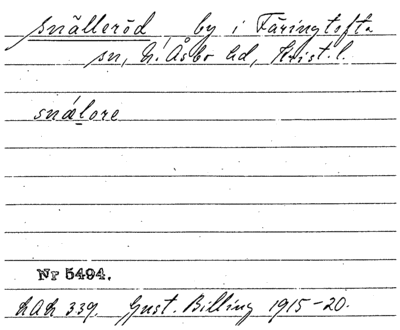 Snälleröd, by i Färingtofta
sn, N. Åsbo hd, Krist. l.
snælore
Nr 5494.
LAL 339. Gust. Billing 1915-20.